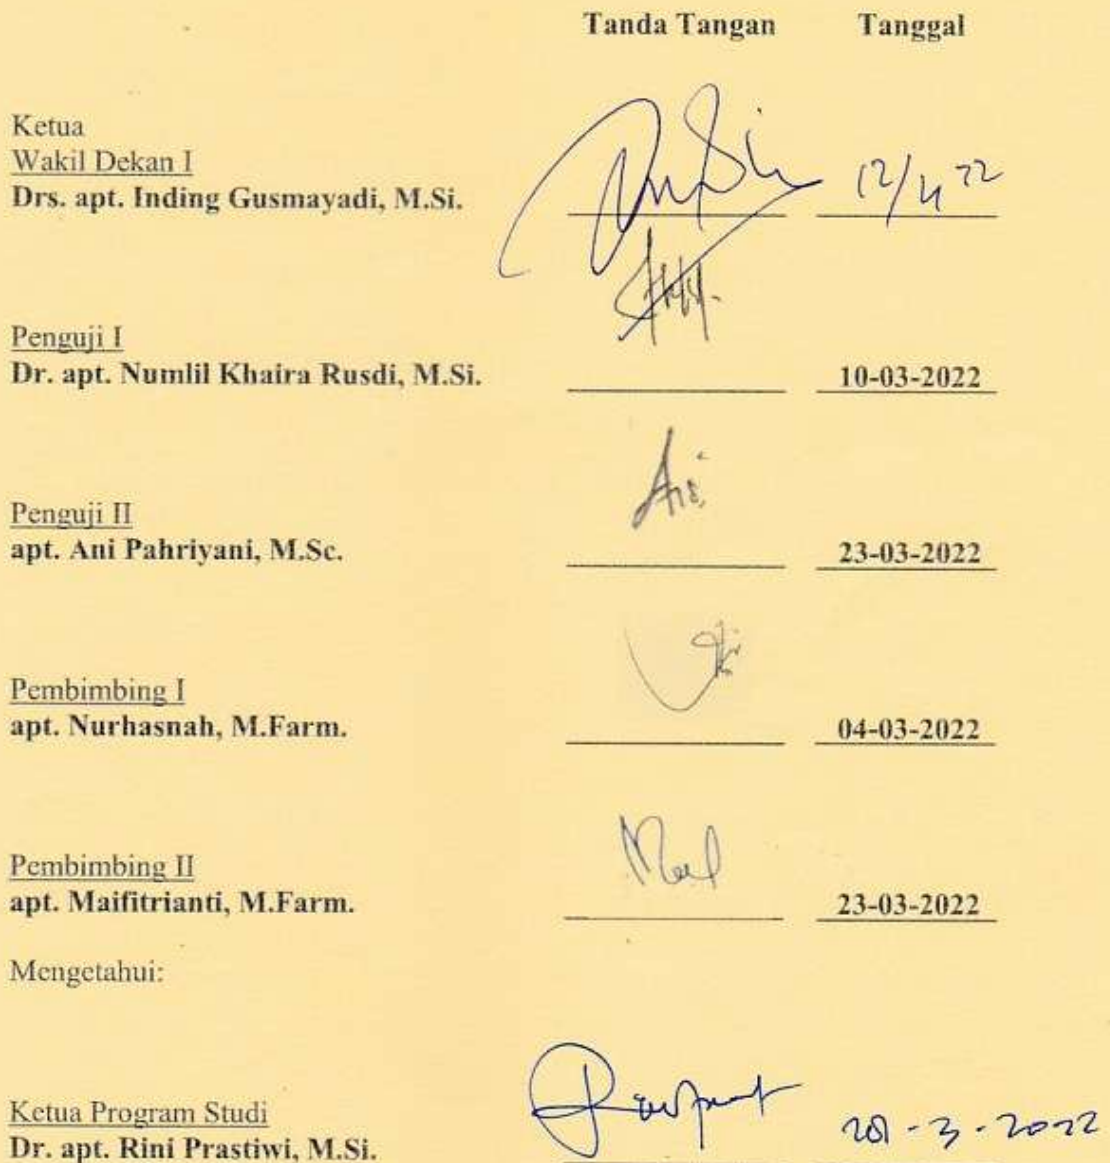 Tanda Tangan Tanggal
Ketua
Wakil Dekan I
Drs. apt. Inding Gusmayadi, M.Si. 12/4 22
Penguji I
Dr. apt. Numlil Khaira Rusdi, M.Si. 10-03-2022
Penguji II
apt. Ani Pahriyani, M.Sc. 23-03-2022
Pembimbing I
apt. Nurhasnah, M.Farm. 04-03-2022
Pembimbing II
apt. Maifitrianti, M.Farm. 23-03-2022
Mengetahui:
Ketua Program Studi
Dr. apt. Rini Prastiwi, M.Si. - 3 - 2022